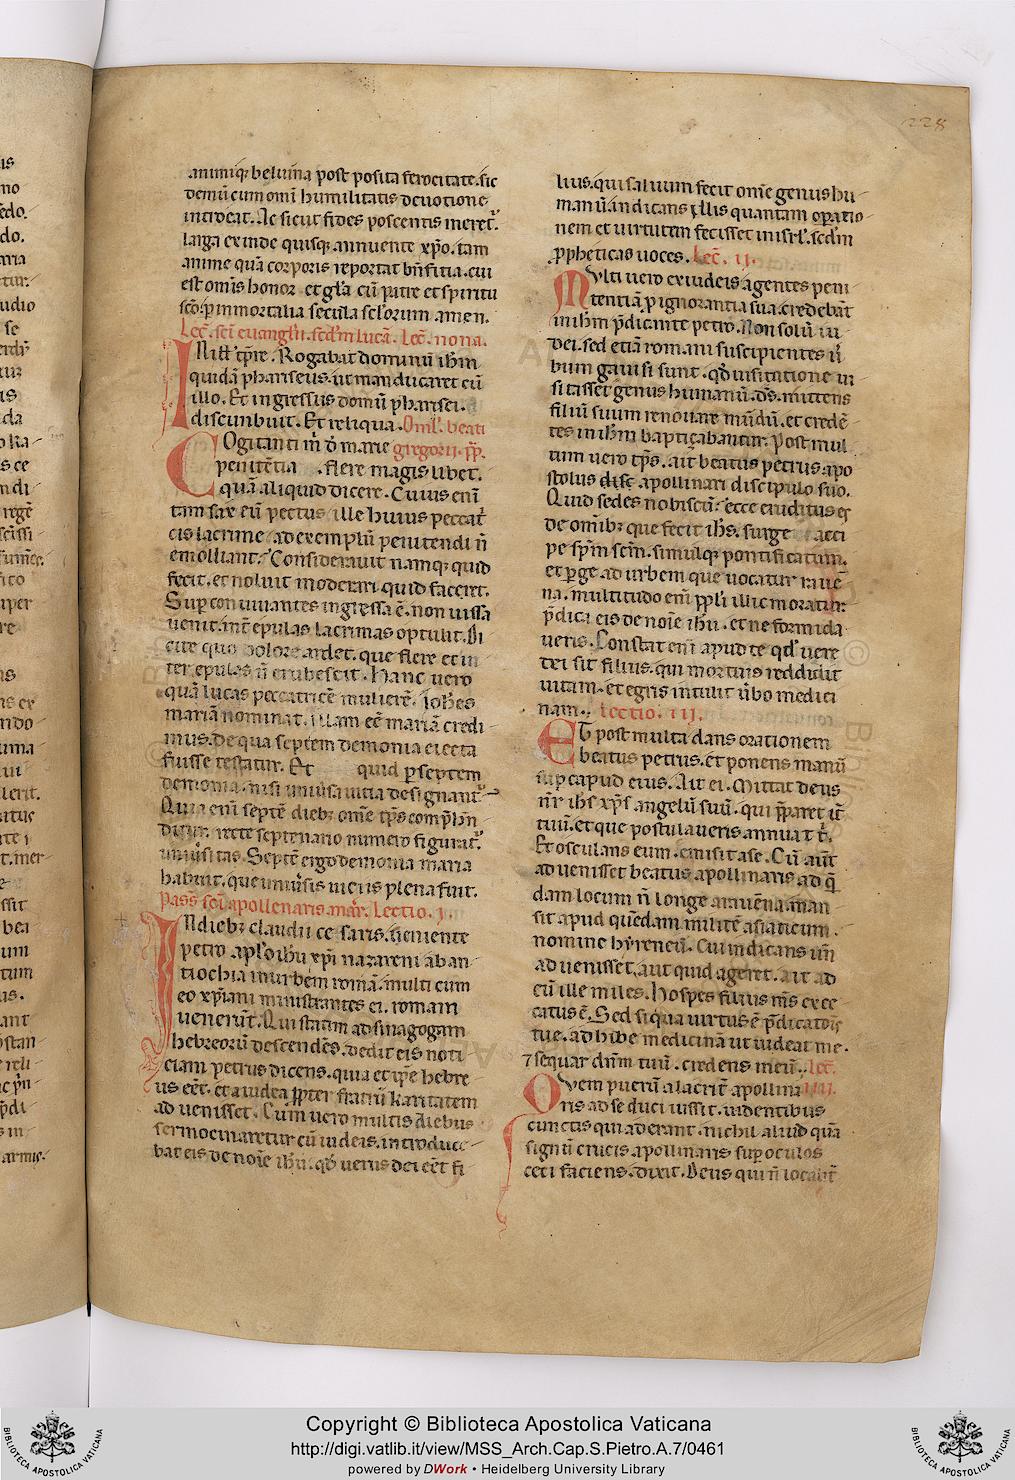 228
animiq; beluina post posita ferocitate. sic
demū cum omī humilitatis deuotione
introeat. Ac sicut fides poscentis meret̃.
larga exinde quisq; annuente xp̄o. tam
anime quā corporis reportat bn̄fitia. cui
est omīs honor et gl̄a cū patre et spiritu
sc̄o. p immortalia secula sclorum amen.
Lec̄. sc̄i euangl̄ii. sedm̄ lucā. Lec̄. nona.
IN ill̄ tp̄re. Rogabat dominū ih̄m
quidā phariseus. ut manducaret cū
illo. Et ingressus domū pharisei.
discunbuit. Et reliqua. Oml̄. beati
COgitanti m̄ d̄ marie gregorii. pp̄.
penitētia. flere magis libet.
quā aliquid dicere. Cuius enī
tam saxeū pectus ille huius peccat̄
cis lacrime ad exemplū penitendi n̄
emolliant. Considerauit namq; quid
fecit. et noluit moderari quid faceret.
Sup conuiuantes ingressa ē. non iussa
uenit. int̄ epulas lacrimas optulit. Di
cite quo dolore ardet. que flere et in
ter epulas n̄ erubescit. Hanc uero
quā lucas peccatricē mulierē. Ioh̄es
mariā nominat. illam eē mariā credi
mus. de qua septem demonia eiecta
fuisse testatur. Et quid p septem
demonia. nisi uniu̇sa uitia designant̃.
Quia enī septē dieb; om̄e tp̄s comp̄hn̄
ditur. recte septenario numero figurat̃.
uniu̇sitas. Septē ergo demonia maria
habuit. que uniu̇sis uiciis plena fuit.
Pass̄ sc̄i apollenaris. mar̄. Lectio. I.
IN dieb; claudii cesaris. ueniente
petro apl̄o ih̄u xp̄i nazareni ab an
tiochia in urbem romā. multi cum
eo xp̄iani ministrantes ei. romam
uenerūt. Qui statim ad sinagogam
hebreorū descendēs. dedit eis noti
ciam petrus dicens. quia et ip̄e hebre
us eēt. et a iudea ppter fratrū karitatem
ad uenisset. Cum uero multis diebus
sermocinaretur cū iudeis. introduce
bat eis de noīe ih̄u. qd̄ uerus dei eēt fi
lius. qui saluum fecit om̄e genus hu
manū. indicans illis quantam opatio
nem et uirtutem fecisset in isrl̄. sedm̄
ppheticas uoces. Lec̄. II.
MUlti uero ex iudeis agentes peni
tentiā p ignorantia sua. credebāt
in ih̄m p̄dicante petro. Non solū iu
dei. sed etiā romani suscipientes u̇
bum gauisi sunt. qd̄ uisitatione ui
sitasset genus humanū. ds̄. mittens
filiū suum renouare mūdū. et credē
tes in ih̄m baptiçabantur. Post mul
tum uero tp̄s. ait beatus petrus apo
stolus disc̄ apollinari discipulo suo.
Quid sedes nobiscū? ecce eruditus es
de omīb; que fecit ih̄s. surge acci
pe sp̄m sc̄m. simulq; pontificatum.
et pge ad urbem que uocatur raue
na. multitudo enī ppl̄i illic moratur.
p̄dica eis de noīe ih̄u. et ne formida
ueris. Constat enī apud te qd̄ uere
dei sit filius. qui mortuis reddidit
uitam. et egris intulit u̇bo medici
nam. Lectio. III.
ET post multa dans orationem
beatus petrus. et ponens manū
sup capud eius. Ait ei. Mittat deus
nr̄ ih̄s xp̄s angelū suū. qui pparet it̄
tuū. et que postulaueris annuat t̄.
Et osculans eum. emisit a se. Cū aut̄
ad uenisset beatus apollinaris ad q̄
dam locum n̄ longe a rauēna. man
sit apud quēdam militē asiaticum.
nomine hyreneū. Cui indicans un̄
ad uenisset. aut quid ageret. ait ad
eū ille miles. Hospes filius m̄s exce
catus ē. Sed si qua uirtus ē p̄dicatōis
tue. adhibe medicinā ut uideat me.
⁊ sequar dn̄m tuū. credens in eū. Lec̄.
QUem puerū alacrit̄ apollina IIII.
ris ad se duci iussit. uidentibus
cunctis qui aderant. nichil aliud quā
signū crucis apollinaris sup oculos
ceci faciens. dixit. Deus qui n̄ locabit̄
Copyright © Biblioteca Apostolica Vaticana
http://digi.vatlib.it/view/MSS_Arch.Cap.S.Pietro.A.7/0461
powered by DWork • Heidelberg University Library
BIBLIOTECA APOSTOLICA VATICANA
BIBLIOTECA APOSTOLICA VATICANA